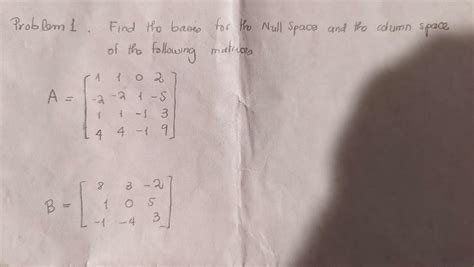 Problem 1. Find the bases for the Null Space and the column space
of the following matrices
A = [1 1 0 2
-2 -2 1 -5
1 1 -1 3
4 4 -1 9]
B = [8 3 -2
1 0 5
-1 -4 3]